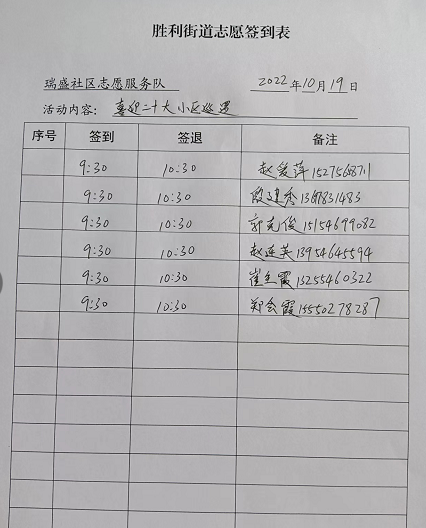 胜利街道志愿签到表
瑞盛社区志愿服务队 2022年10月19日
活动内容：喜迎二十大小区巡逻
序号 签到 签退 备注
9:30 10:30 赵爱萍
9:30 10:30 殷建秀
9:30 10:30 郭克俊 15154699082
9:30 10:30 赵连芙 13954645594
9:30 10:30 崔玉霞 13255460322
9:30 10:30 郑会霞 15550278287